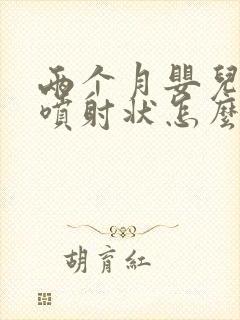 两个月嬰兒
噴射状怎麼
胡育紅